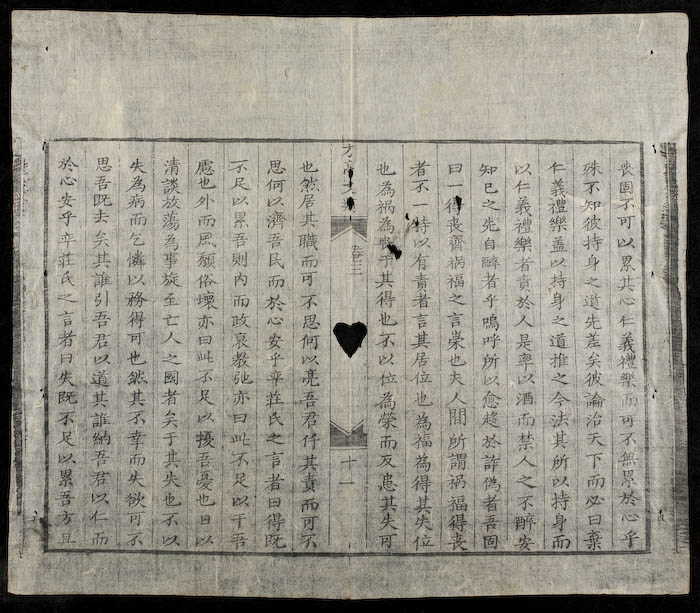 喪固不可以累其心仁義禮樂而可不無累於心乎
殊不知彼持身之道先差矣彼論治天下而必曰棄
仁義禮樂蓋以持身之道推之今法其所以持身而
以仁義禮樂者責於人是率以酒而禁人之不醉安
知已之先自醉者乎嗚呼所以愈趍於詐偽者吾固
曰一得喪齊禍福之言祟也夫人間所謂禍福得喪
者不一特以有責者言其居位也為福為得其失位
也為禍為于其得也不以位為榮而反患其失可
卷三
十一
也然居其職而可不思何以亮吾君仔其責而可不
思何以濟吾民而於心安乎莊氏之言者曰得既
不足以累吾則內而政衰教弛亦曰此不足以干吾
慮也外而風頹俗壞亦曰此不足以擾吾憂也日以
清談放蕩為事旋至亡人之國者矣于其失也不以
失為病而乞憐以務得可也然其不幸而失欲可不
思吾既去矣其誰引吾君以道其誰納吾君以仁而
於心安乎莊氏之言者曰失既不足以累吾方且